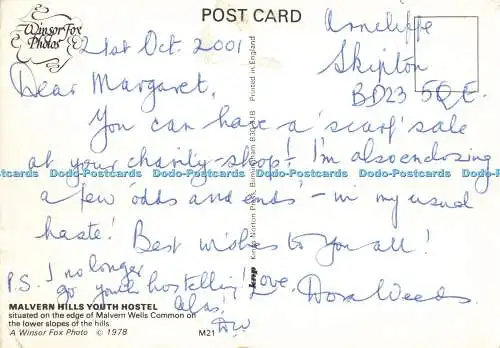 POST CARD
Winsor Fox
Photos
21st Oct. 2001
Arncliffe
Skipton
BD23 5QE.
Dear Margaret,
You can have a 'scarf' sale
at your charity-shop! I'm also enclosing
a few 'odds and ends' - in my usual
haste! Best wishes to you all!
Love, Dora Weeds.
P.S. I no longer
go youth hostelling!
Alas!
DW
MALVERN HILLS YOUTH HOSTEL
situated on the edge of Malvern Wells Common on
the lower slopes of the hills.
A Winsor Fox Photo © 1978
M21
knp
Kings Norton Press, Birmingham
Printed in England
Dodo-Postcards Dodo-Postcards Dodo-Postcards Dodo-Postcards Dodo-Postcards